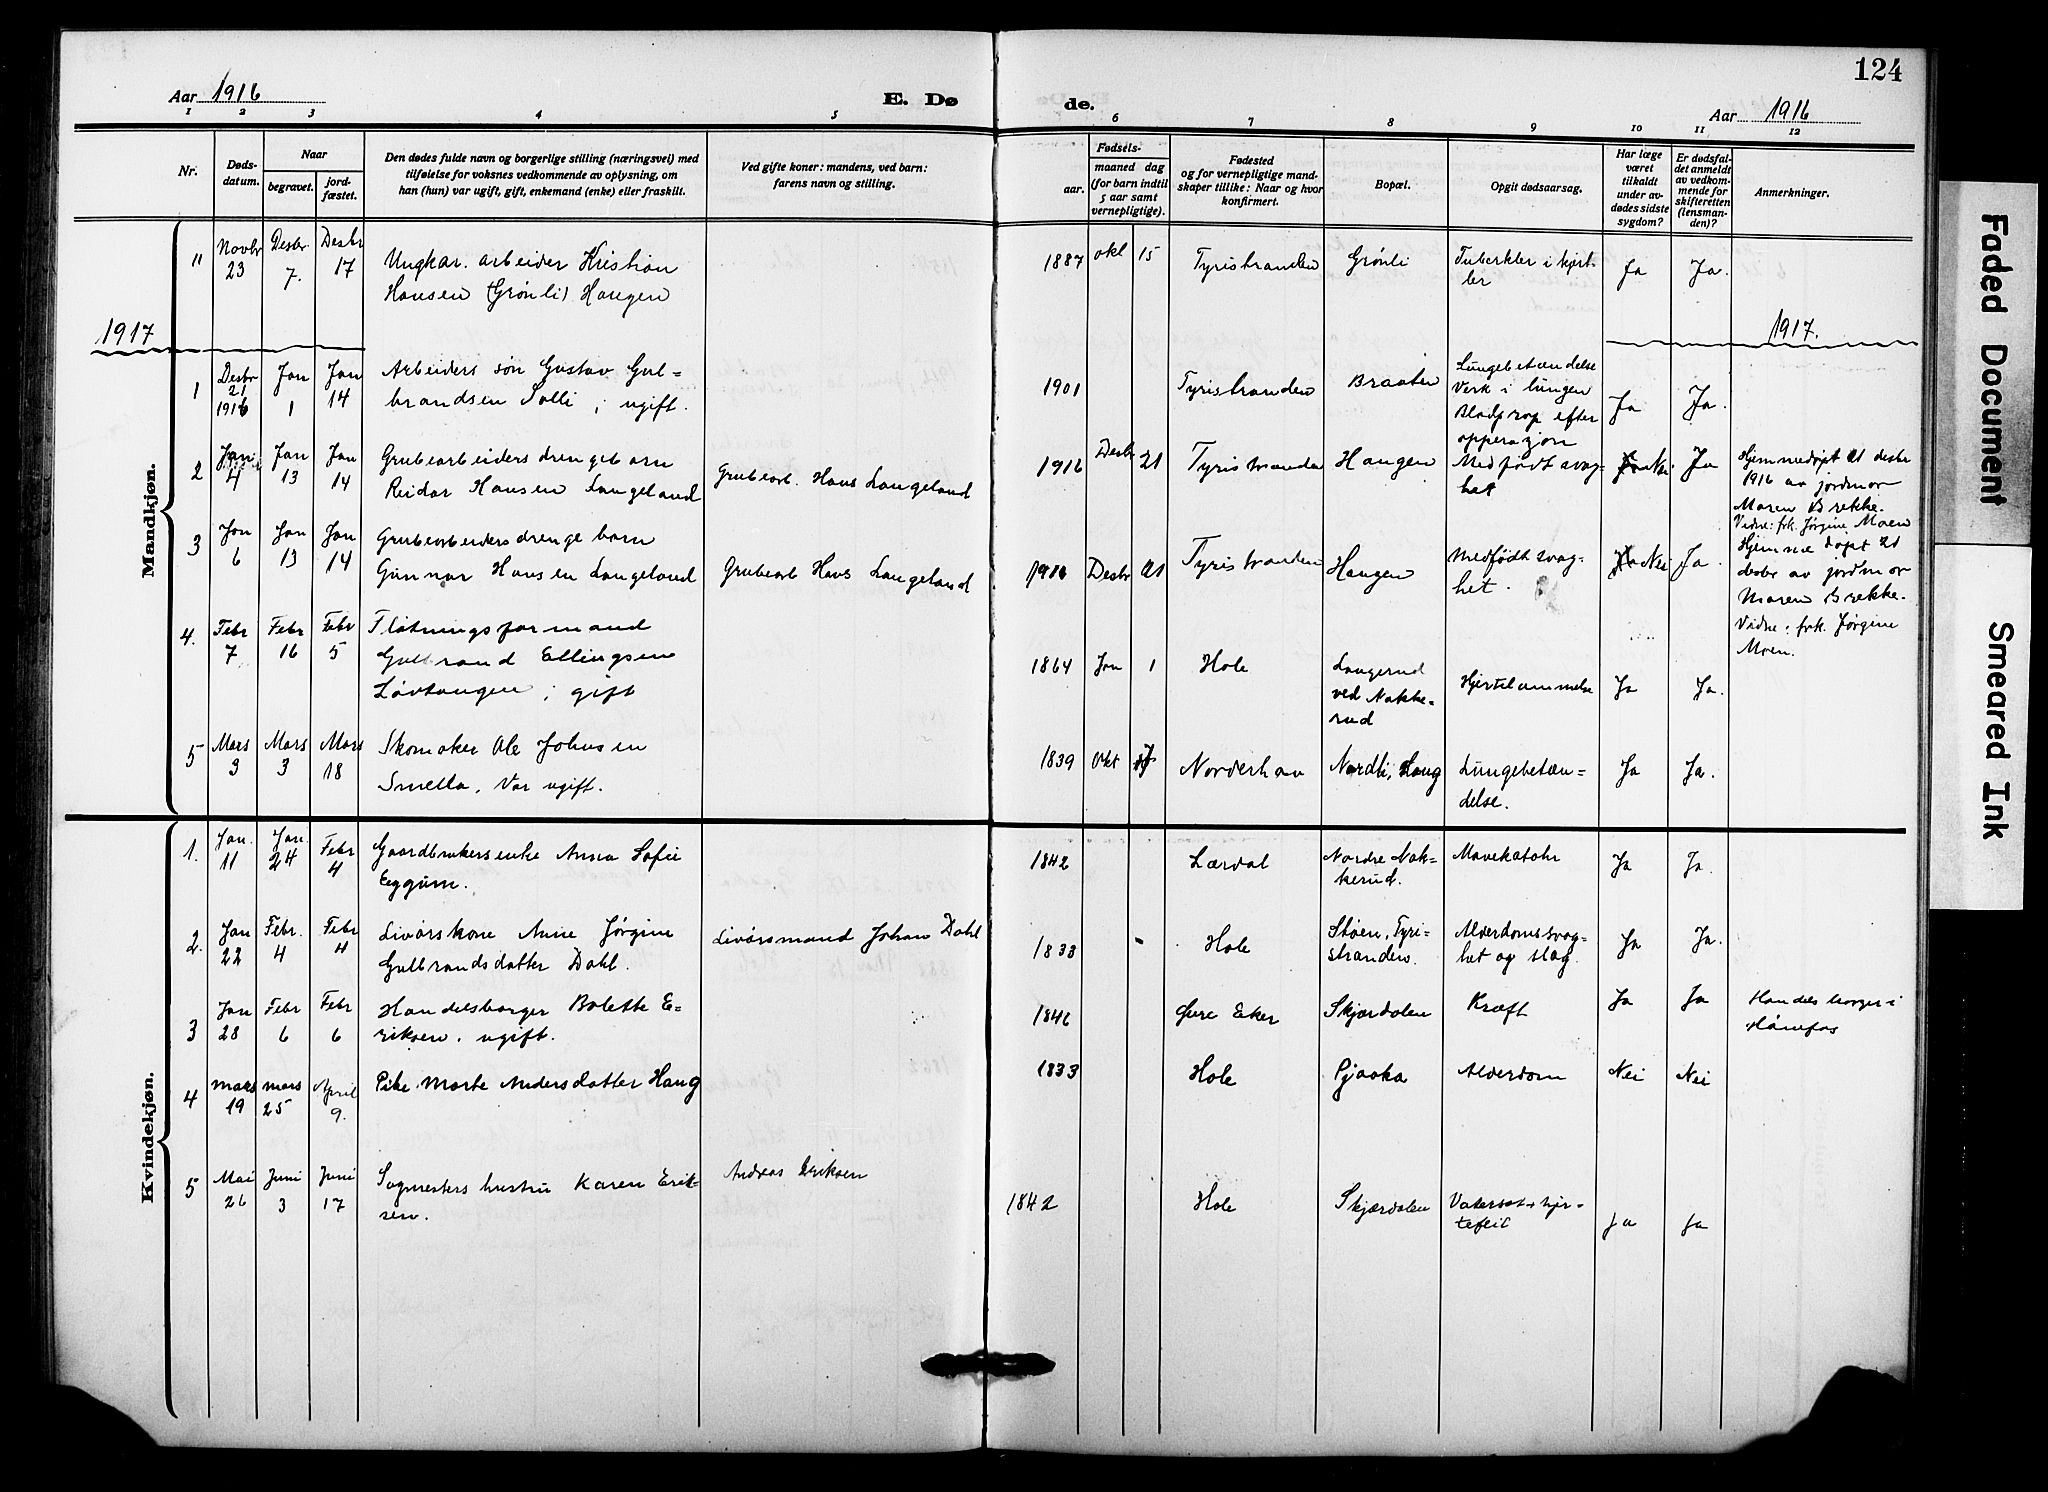 124
Aar 1916
E. Dø
de.
Aar 1916
1 2 3 4 5 6 7 8 9 10 11 12
Nr.
Døds-
datum.
Naar
begravet.
jord-
fæstet.
Den dødes fulde navn og borgerlige stilling (næringsvei) med
tilføielse for voksnes vedkommende av oplysning, om
han (hun) var ugift, gift, enkemand (enke) eller fraskilt.
Ved gifte koner: mandens, ved barn:
farens navn og stilling.
Fødsels-
aar.
maaned dag
(for barn indtil
5 aar samt
vernepligtige).
Fødested
og for vernepligtige mand-
skaper tillike: Naar og hvor
konfirmert.
Bopæl.
Opgit dødsaarsag.
Har læge
været
tilkaldt
under av-
dødes sidste
sygdom?
Er dødsfal-
det anmeldt
av vedkom-
mende for
skifteretten
(lensman-
den)?
Anmerkninger.
Mandkjøn.
11 Novbr 23 Desbr 7. Desbr 17
Ungkar. arbeider Kristian
Hansen (Grønli) Haugen
1887 okt 15 Tyristranden Grønli
Tuberkler i kjert-
ler
Ja Ja.
1917
1917.
1 Desbr 21 1916 Jan 1 Jan 14
Arbeiders søn Gustav Gul=
brandsen Solli ; ugift.
1901 Tyristranden Braaten
Lungebetændelse
Verk i lungen
Blodprop efter
opperasjon
Ja Ja.
2 Jan 4 Jan 13 Jan 14
Grubearbeiders drengebarn
Reidar Hansen Langeland
Grubearb. Hans Langeland
1916 Desbr 21 Tyristranden Haugen
Medfødt svag-
het
Nei. Ja
Hjemmedøpt 21 desbr
1916 av jordmor
Maren Brekke.
Vidne: frk. Jørgine Moen
3 Jan 6 Jan 13 Jan 14
Grubearbeiders drengebarn
Gunnar Hansen Langeland
Grubearb Hans Langeland
1916 Desbr 21 Tyristranden Haugen
Medfødt svag-
het.
Nei Ja.
Hjemmedøpt 21
desbr av jordmor
Maren Brekke.
Vidne: frk. Jørgine
Moen.
4. Febr 7 Febr 16 Febr 5
Fløtningsformand
Gulbrand Ellingsen
Løvtangen ; gift
1864 Jan 1 Hole
Langerud
ved Nakke=
rud
Hjertelammelse
Ja Ja.
5 Mars 3 Mars 3 Mars 18
Skomaker Ole Johnsen
Smella, Var ugift.
1839 Okt Norderhov Nordli, Haug
Lungebetæn=
delse.
Ja Ja.
Kvindekjøn.
1. Jan. 11 Jan. 24 Febr 4
Gaardbrukersenke Anna Sofie
Eggum.
1842 Lærdal
Nordre Nak-
kerud.
Mavekatahr
Ja Ja.
2. Jan 22 Febr. 4 Febr 4
Livørskone Anne Jørgine
Gulbrandsdatter Dahl.
Livørsmand Johan Dahl
1833 Hole
Støen, Tyri-
stranden.
Alderdomssvag-
het og slag.
Ja Ja.
3 Jan 28 Febr 6 Febr 6
Handelsborger Bolette E-
riksen. ugift.
1846 Øvre Eker Skjærdalen Kræft
Ja Ja
Handelsborger i
Hønefos
4 mars 19 mars 25 April 9.
Pike Marte Andersdatter Haug
1833 Hole Pjaaka Alderdom
Nei Nei
5 Mai 26 Juni 3 Juni 17
Sagmesters hustru Karen Erik-
sen.
Andreas Eriksen
1842 Hole Skjærdalen
Vatersot + hjer-
tefeil
Ja Ja
Faded Document
Smeared Ink